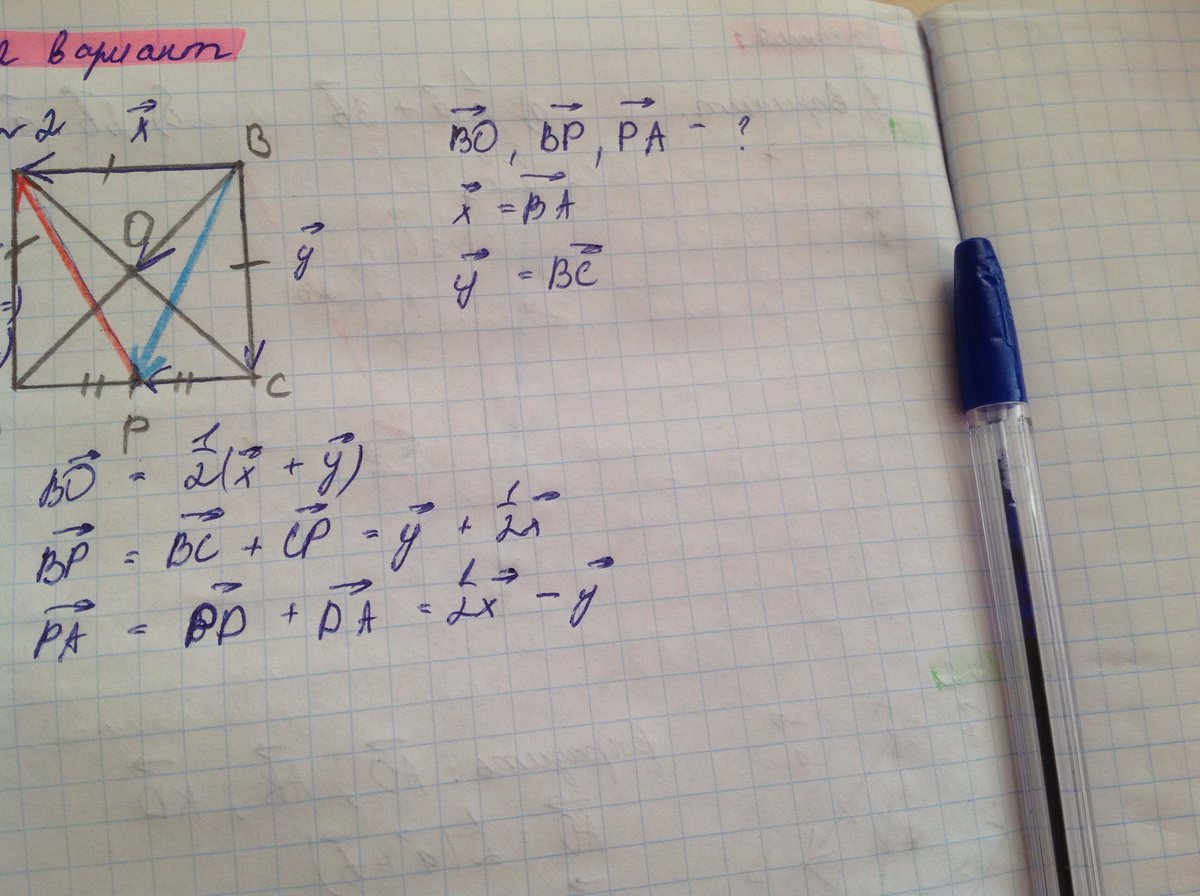 2 вариант
2 x⃗ B
O y⃗
P C
B͞O⃗, B͞P⃗, P͞A⃗ - ?
x⃗ = BA⃗
y⃗ = BC⃗
BO⃗ = 1/2(x⃗ + y⃗)
BP⃗ = BC⃗ + CP⃗ = y⃗ + 1/2x⃗
PA⃗ = PD⃗ + DA⃗ = 1/2x⃗ - y⃗